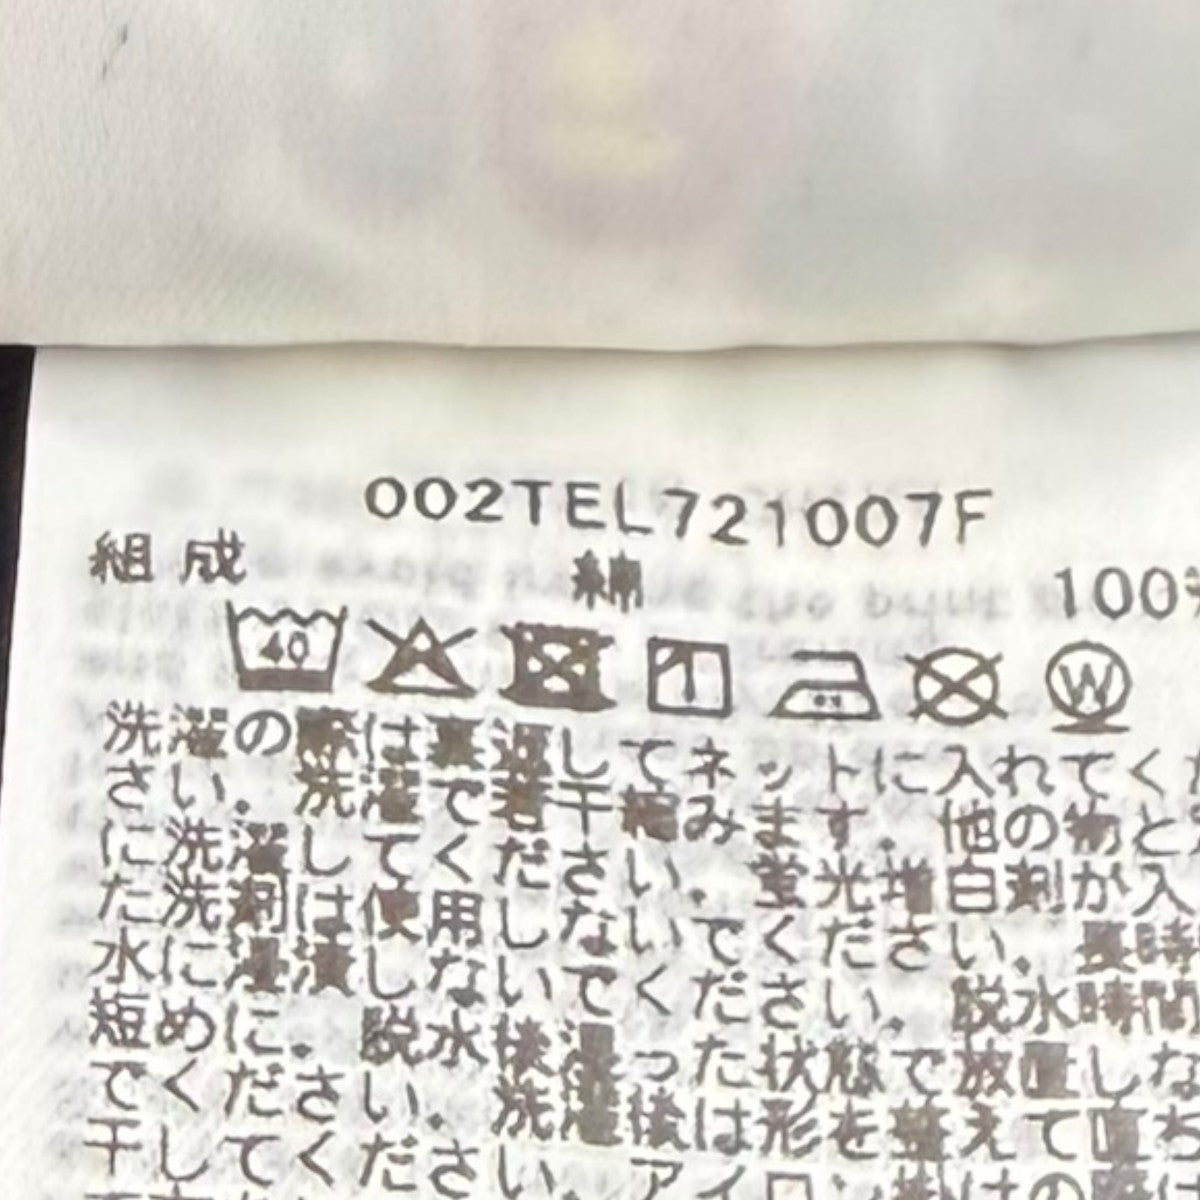 002TEL721007F
組成 綿 100%
40
W
洗濯の際は裏返してネットに入れてくだ
さい。洗濯で若干縮みます。他の物と
に洗濯してください。蛍光増白剤が入
た洗剤は使用しないでください。長時
水に浸漬しないでください。脱水時間
短めに。脱水後湿った状態で放置しな
でください。洗濯後は形を整えて直ち
干してください。アイロン